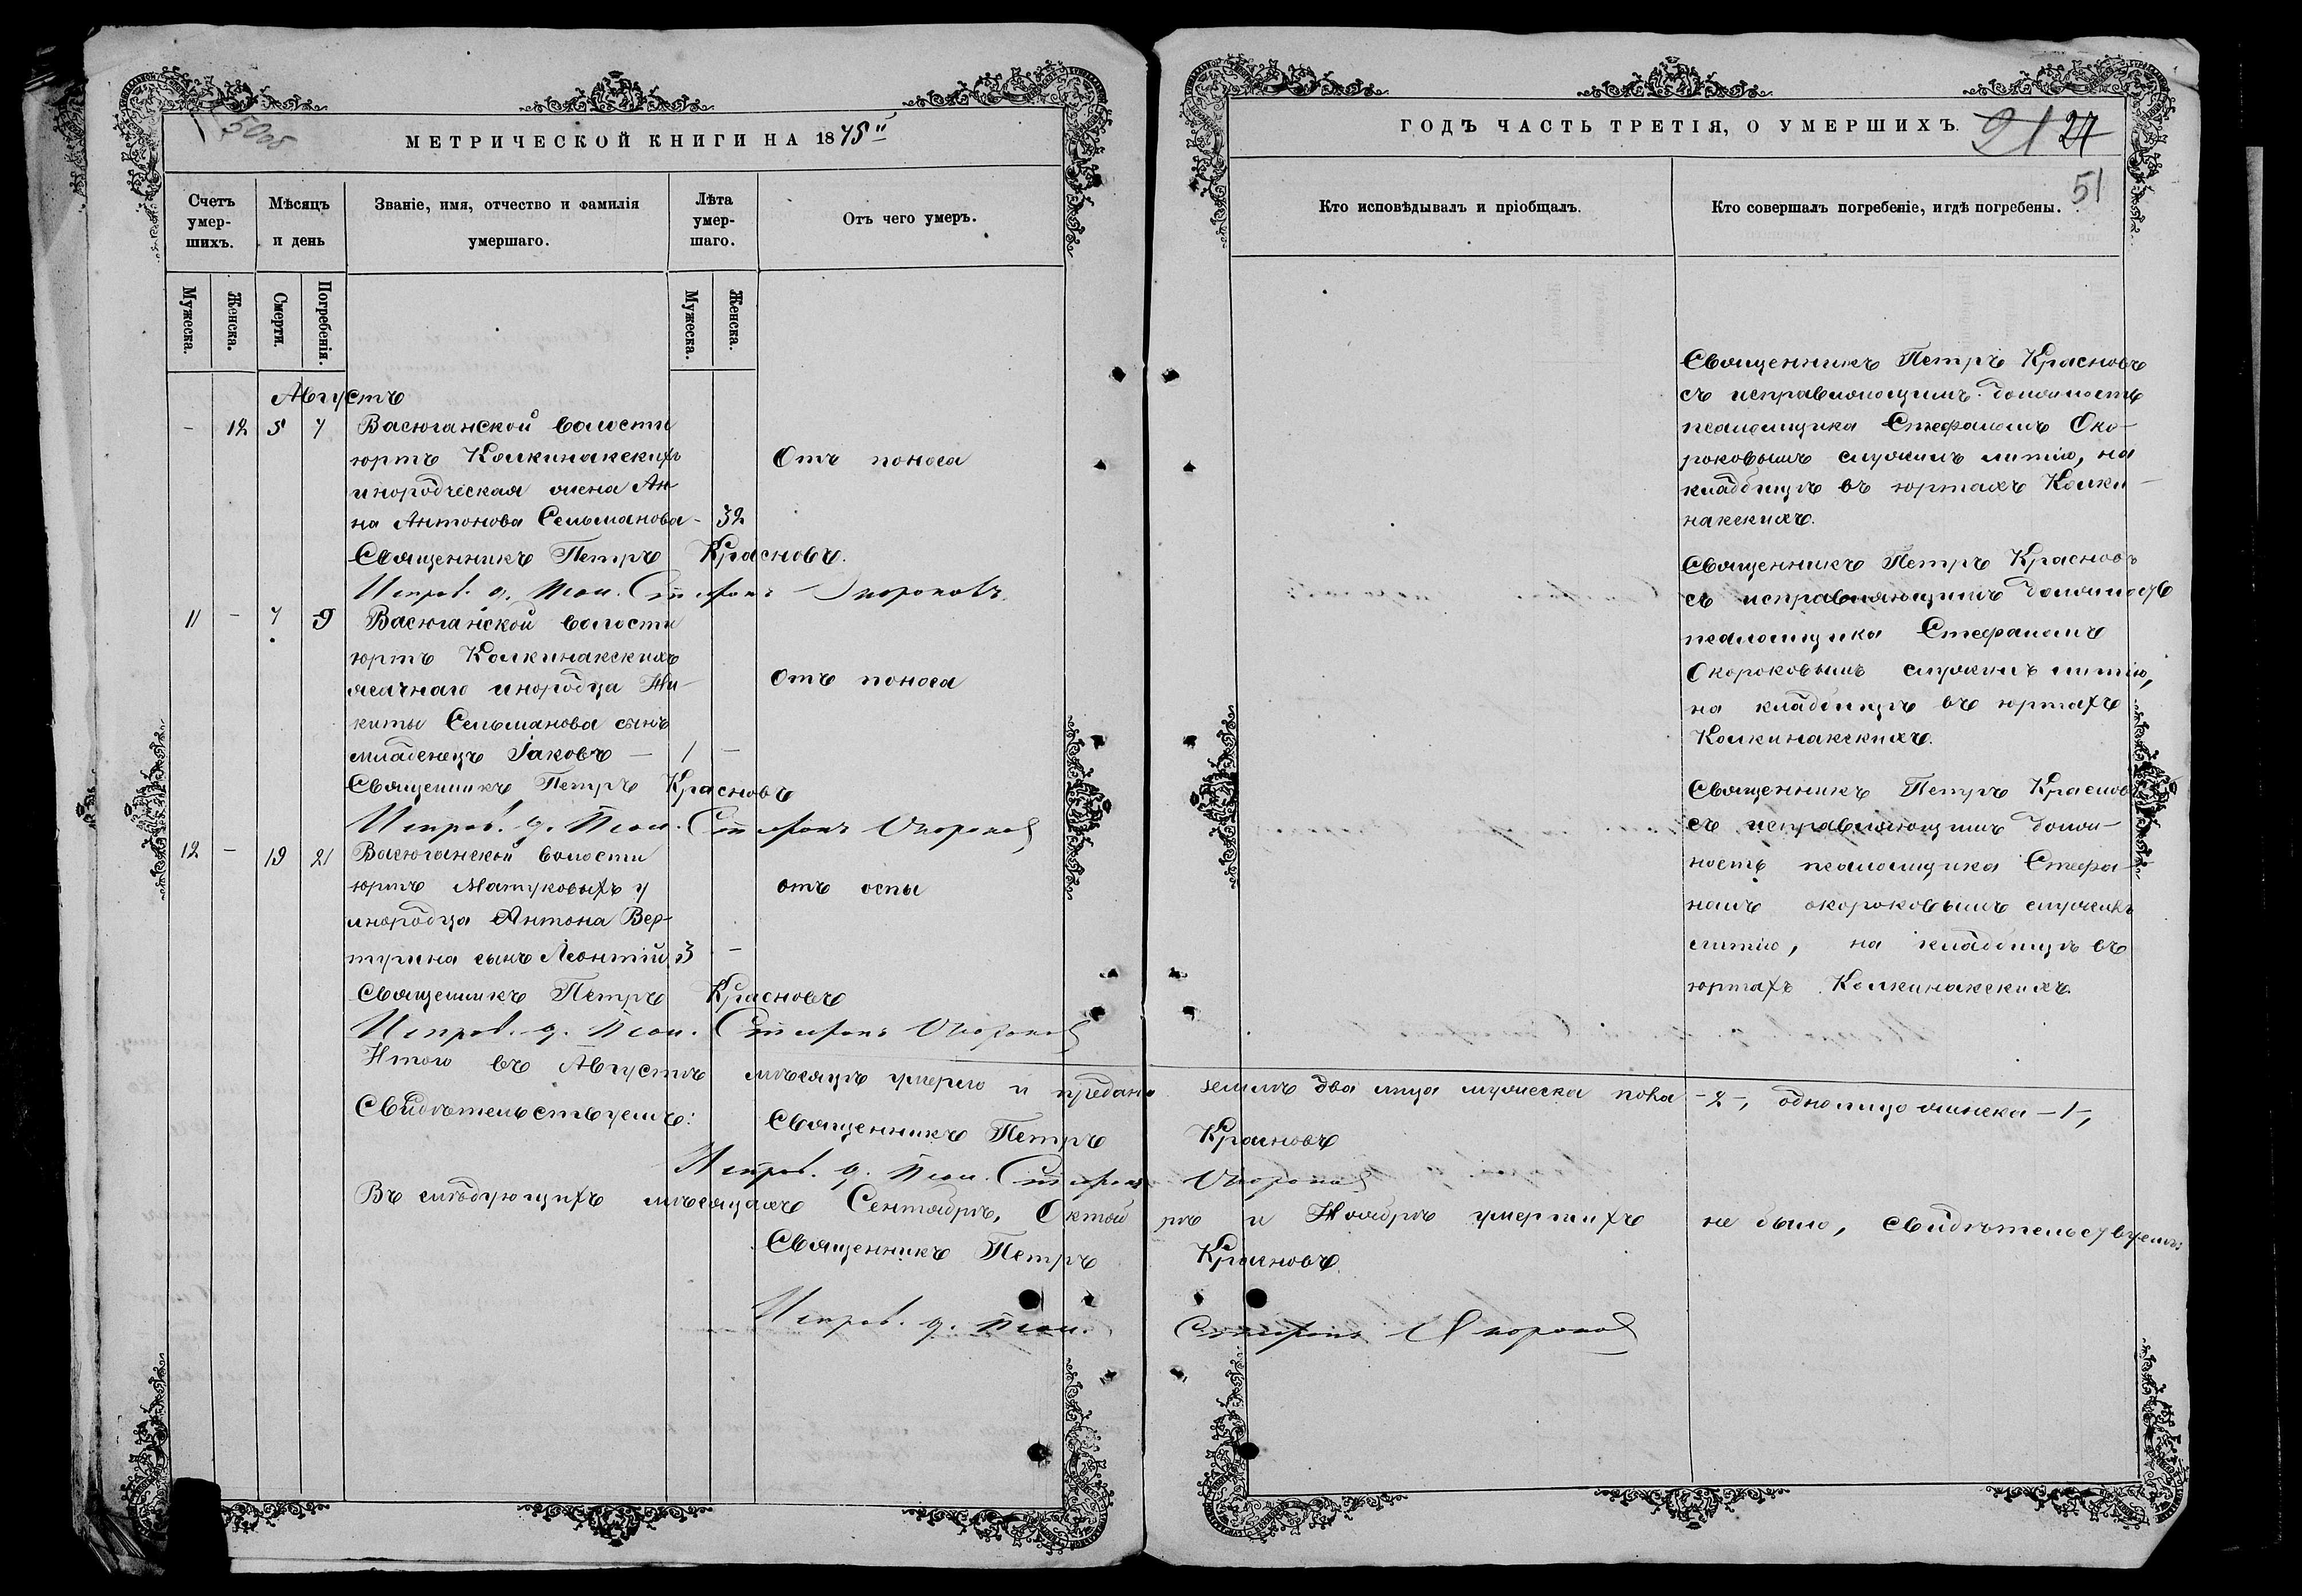 МЕТРИЧЕСКОЙ КНИГИ НА 1875й
Счетъ умер-
шихъ.
Мѣсяцъ
и день
Званіе, имя, отчество и фамилія
умершаго.
Лѣта
умер-
шаго.
Отъ чего умеръ.
Мужеска.
Женска.
Смерти.
Погребенія.
Мужеска.
Женска.
Августъ
- 12 5 7 Васюганской волости
юртъ Колкинакскихъ
инородческая жена Ан-
на Антонова Сельманова - 32
Отъ поноса
Священникъ Петръ Красновъ.
Исправ. д. Псал. Стефанъ Окороковъ
11 - 7 9 Васюганской волости
юртъ Колкинакскихъ
ясачнаго инородца Ни-
киты Сельманова сынъ
младенецъ Іаковъ — 1 —
Отъ поноса
Священникъ Петръ Красновъ
Исправ. д. Псал. Стефанъ Окороковъ
12 - 19 21 Васюганской волости
юртъ Матуковыхъ у
инородца Антона Вер-
турина сынъ Леонтій 3 -
отъ оспы
Священникъ Петръ Красновъ
Исправ. д. Псал. Стефанъ Окороковъ
ГОДЪ ЧАСТЬ ТРЕТІЯ, О УМЕРШИХЪ.
21 27
51
Кто исповѣдывалъ и пріобщалъ.
Кто совершалъ погребеніе, и гдѣ погребены.
Священникъ Петръ Красновъ
съ исправляющимъ должность
псаломщика Стефаномъ Око-
роковымъ служилъ литію, на
кладбищѣ въ юртахъ Колки-
накскихъ.
Священникъ Петръ Красновъ
съ исправляющимъ должность
псаломщика Стефаномъ
Окороковымъ служилъ литію,
на кладбищѣ въ юртахъ
Колкинакскихъ.
Священникъ Петръ Красновъ
съ исправляющимъ долж-
ность псаломщика Стефа-
номъ окороковымъ служилъ
литію, на кладбищѣ въ
юртахъ Колкинакскихъ.
Итого въ Августѣ мѣсяцѣ умерло и предано землѣ два лица мужеска пола -2-, одно лицо женска -1-,
Свидѣтельствуемъ: Священникъ Петръ Красновъ
Исправ. д. Псал. Стефанъ Окороковъ
Въ слѣдующихъ мѣсяцахъ Сентябрѣ, Октяб рѣ и Ноябрѣ умершихъ не было, свидѣтельствуемъ
Священникъ Петръ Красновъ
Исправ. д. Псал. Стефанъ Окороковъ